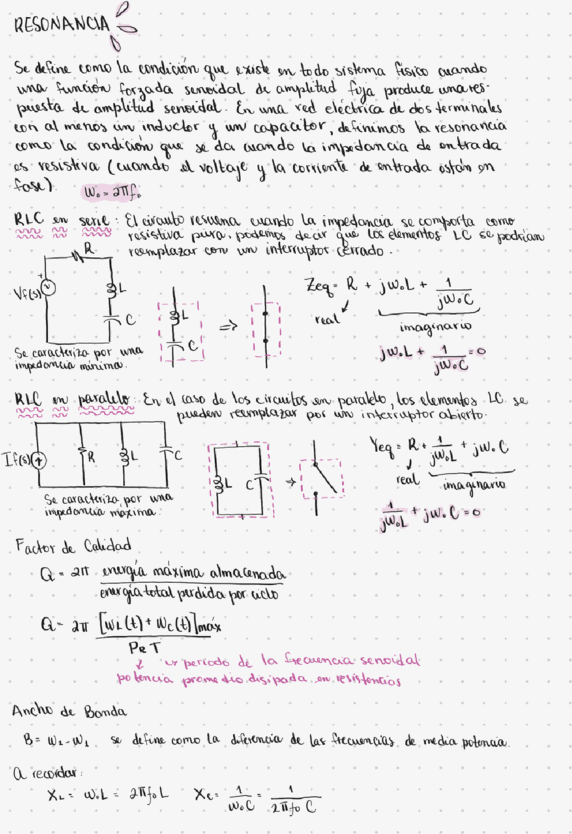 RESONANCIA
Se define como la condición que existe en todo sistema físico cuando
una función forzada senoidal de amplitud fija produce una res-
puesta de amplitud senoidal. En una red eléctrica de dos terminales
con al menos un inductor y un capacitor, definimos la resonancia
como la condición que se da cuando la impedancia de entrada
es resistiva (cuando el voltaje y la corriente de entrada están en
fase).
ω₀ = 2πf₀
RLC en serie: El circuito resuena cuando la impedancia se comporta como
resistiva pura, podemos decir que los elementos LC se podrían
reemplazar con un interruptor cerrado.
R
+
Vf(s)
-
L
C
L
C
=>
Zeq = R + jω₀L + 1/jω₀C
real
imaginario
jω₀L + 1/jω₀C = 0
Se caracteriza por una
impedancia mínima.
RLC en paralelo: En el caso de los circuitos en paralelo, los elementos LC se
pueden reemplazar por un interruptor abierto.
If(s)
R
L
C
L
C
→
Yeq = R + 1/jω₀L + jω₀C
real
imaginario
1/jω₀L + jω₀C = 0
Se caracteriza por una
impedancia máxima.
Factor de Calidad
Q = 2π energía máxima almacenada
energía total perdida por ciclo
Q = 2π [ωL(t) + ωC(t)]máx
PR T
↳ período de la frecuencia senoidal
potencia promedio disipada en resistencias
Ancho de Banda
B = ω₂ - ω₁ se define como la diferencia de las frecuencias de media potencia.
A recordar:
XL = ω₀L = 2πf₀L XC = 1/ω₀C = 1/2πf₀C